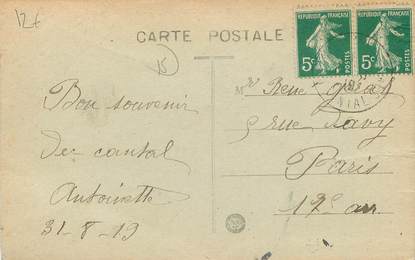 12€
CARTE POSTALE
RÉPUBLIQUE FRANÇAISE
5c POSTES
RÉPUBLIQUE FRANÇAISE
5c POSTES
15
Bon souvenir
du cantal
Antoinette
31-8-19
Mr René
5 rue
Paris
12e arr